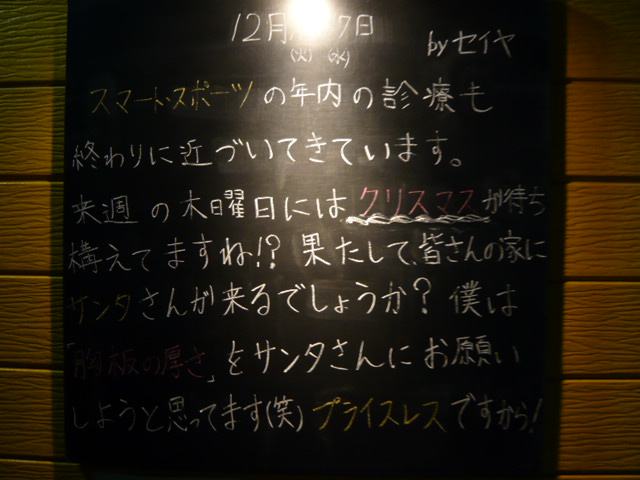 12月 7日
(火) (水) byセイヤ
スマート・スポーツの年内の診療も
終わりに近づいてきています。
来週の木曜日にはクリスマスが待ち
構えてますね!? 果たして、皆さんの家に
サンタさんが来るでしょうか? 僕は
「胸板の厚さ」をサンタさんにお願い
しようと思ってます(笑)プライスレスですから!